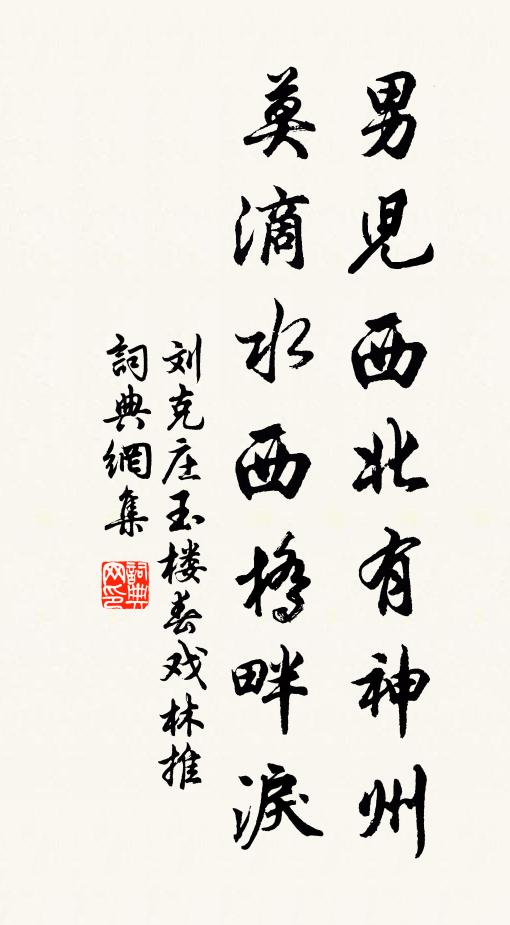 男兒西北有神州
莫滴水西橋畔淚
刘克庄玉楼春戏林推
詞典網集
詞典网印